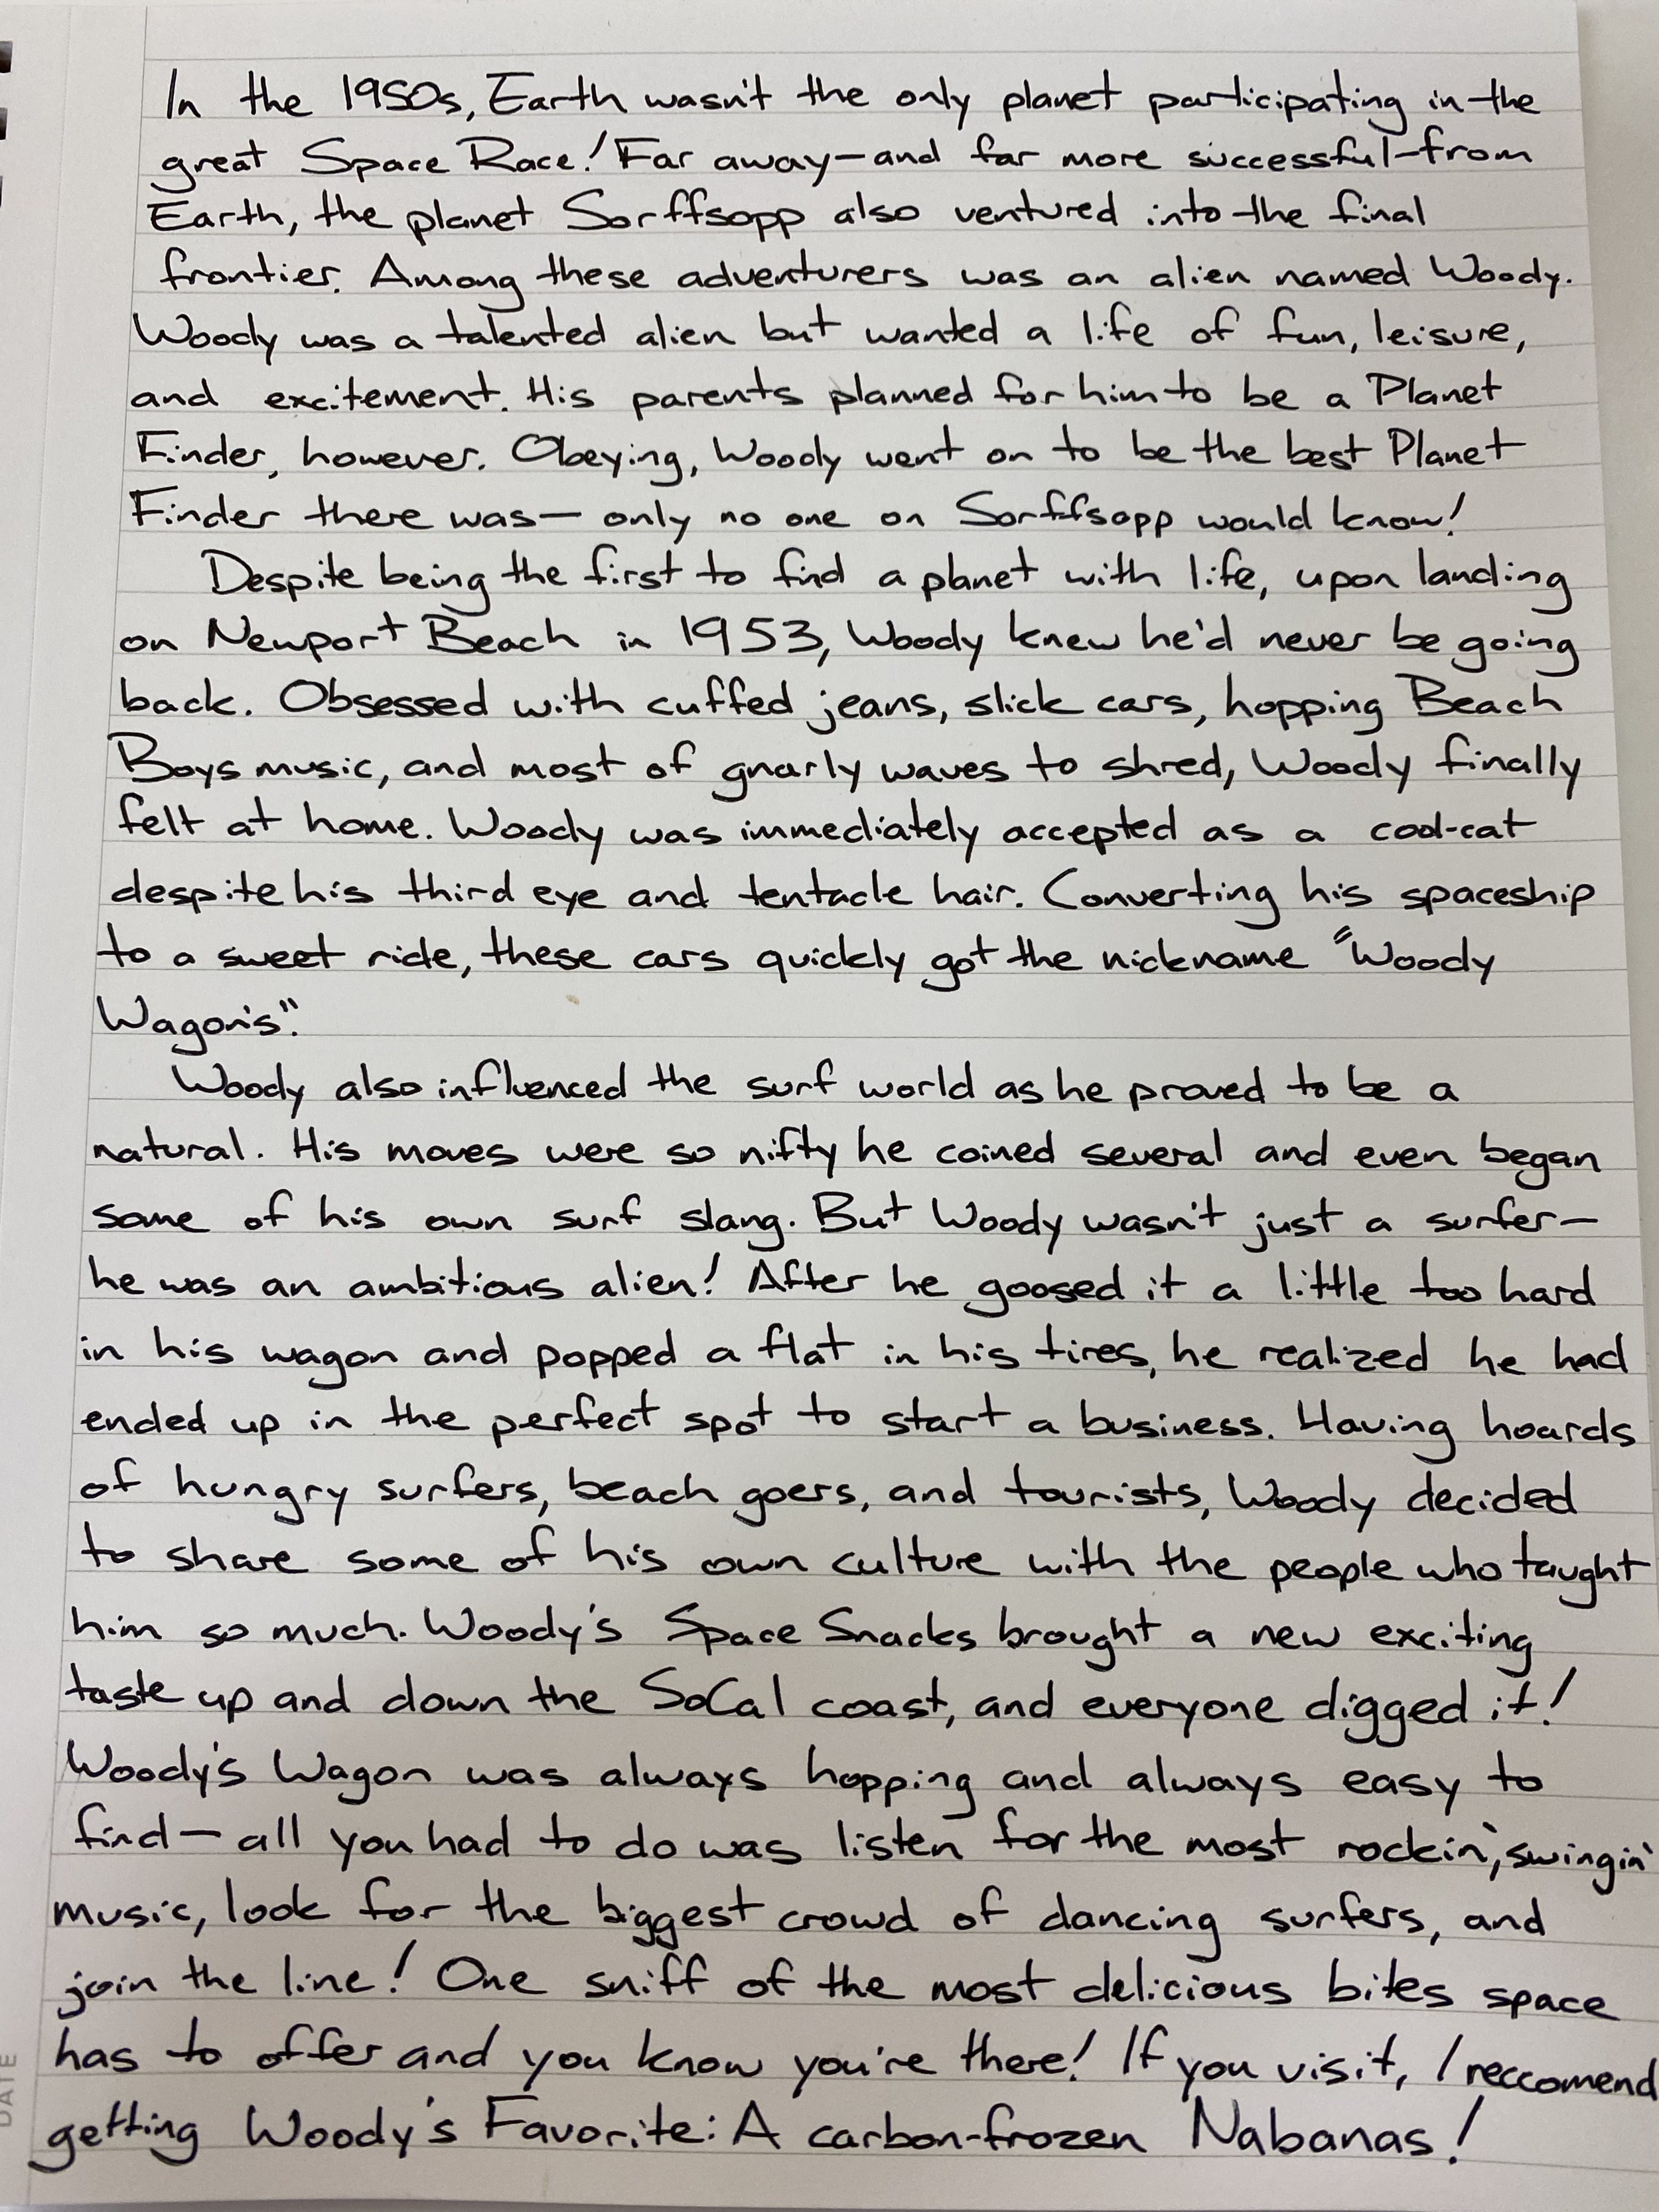 In the 1950s, Earth wasn't the only planet participating in the
great Space Race! Far away—and far more successful—from
Earth, the planet Sorffsopp also ventured into the final
frontier. Among these adventurers was an alien named Woody.
Woody was a talented alien but wanted a life of fun, leisure,
and excitement. His parents planned for him to be a Planet
Finder, however. Obeying, Woody went on to be the best Planet
Finder there was— only no one on Sorffsopp would know!
Despite being the first to find a planet with life, upon landing
on Newport Beach in 1953, Woody knew he'd never be going
back. Obsessed with cuffed jeans, slick cars, hopping Beach
Boys music, and most of gnarly waves to shred, Woody finally
felt at home. Woody was immediately accepted as a cool-cat
despite his third eye and tentacle hair. Converting his spaceship
to a sweet ride, these cars quickly got the nickname "Woody
Wagon's".
Woody also influenced the surf world as he proved to be a
natural. His moves were so nifty he coined several and even began
some of his own surf slang. But Woody wasn't just a surfer—
he was an ambitious alien! After he goosed it a little too hard
in his wagon and popped a flat in his tires, he realized he had
ended up in the perfect spot to start a business. Having hoards
of hungry surfers, beach goers, and tourists, Woody decided
to share some of his own culture with the people who taught
him so much. Woody's Space Snacks brought a new exciting
taste up and down the SoCal coast, and everyone digged it!
Woody's Wagon was always hopping and always easy to
find— all you had to do was listen for the most rockin', swingin'
music, look for the biggest crowd of dancing surfers, and
join the line! One sniff of the most delicious bites space
has to offer and you know you're there! If you visit, I reccomend
getting Woody's Favorite: A carbon-frozen Nabanas!
DATE